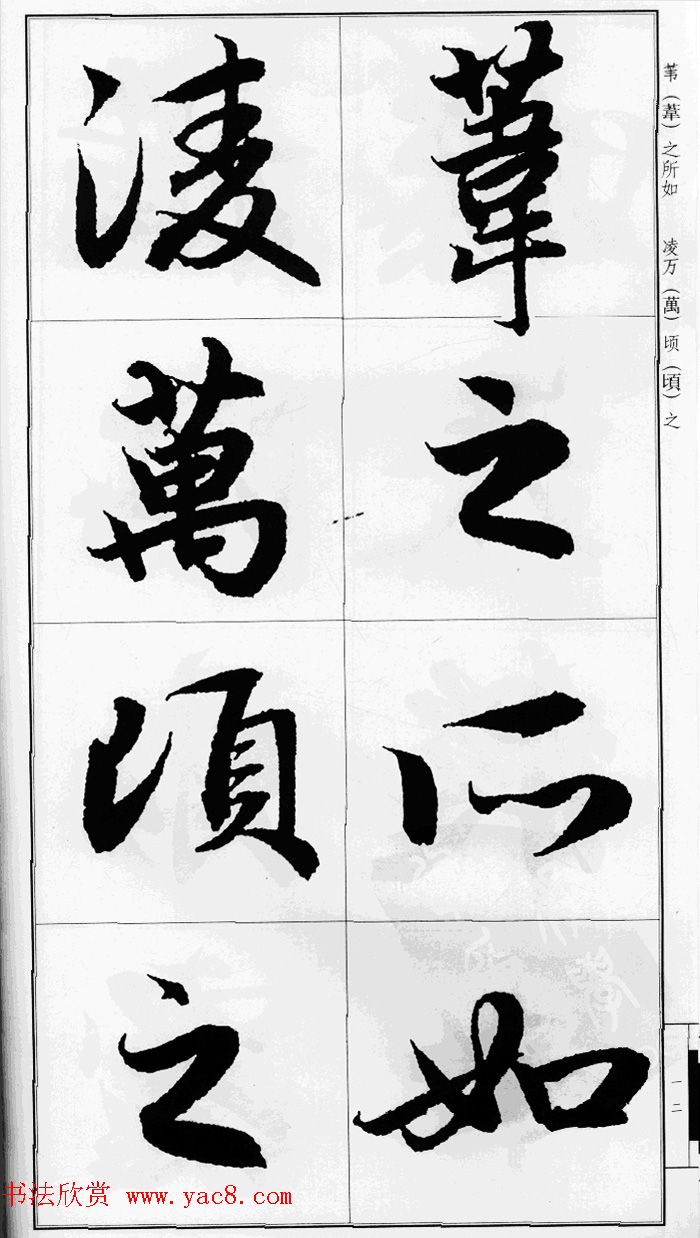 葦之所如
淩萬頃之
苇（葦）之所如　凌万（萬）顷（頃）之
一二
书法欣赏 www.yac8.com